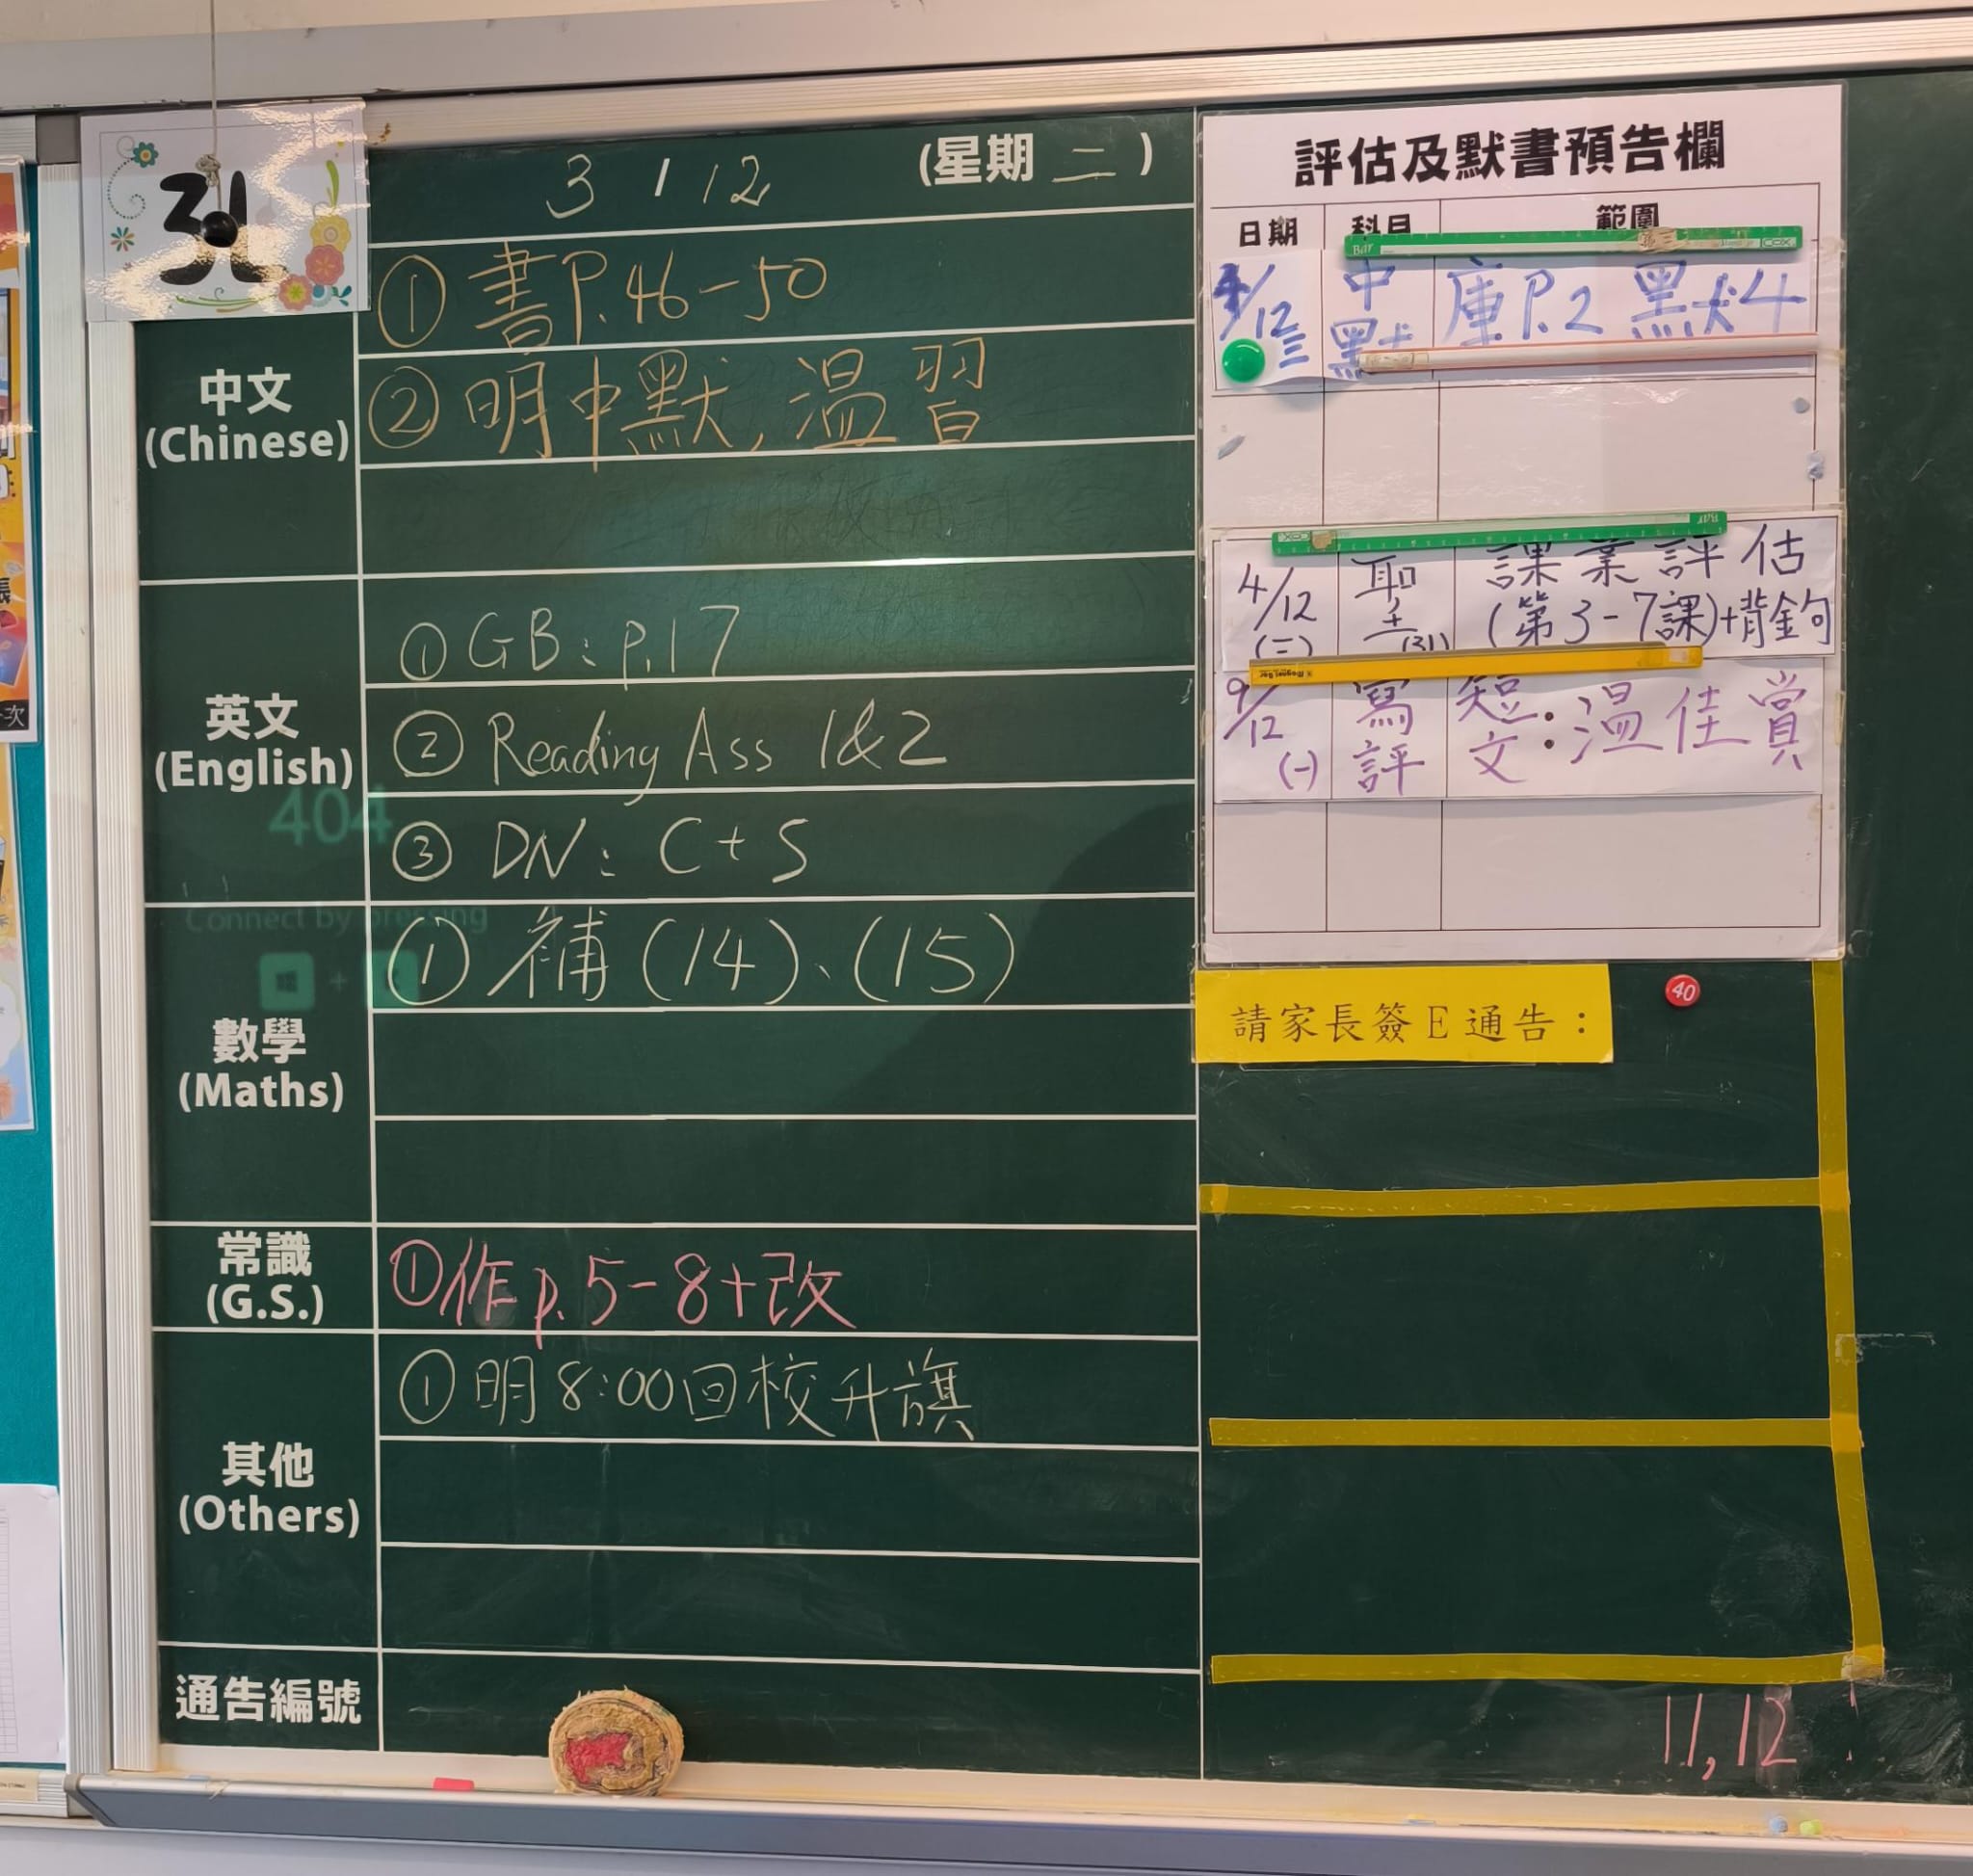 3L
3 / 12 (星期 二 )
中文
(Chinese)
① 書P.46-50
② 明中默, 溫習
英文
(English)
① GB: p.17
② Reading Ass 1&2
③ DN: C + S
404
Connect by pressing
數學
(Maths)
① 補 (14)、(15)
常識
(G.S.)
① 作p. 5-8+改
其他
(Others)
① 明 8:00回校升旗
通告編號
評估及默書預告欄
日期 科目 範圍
4/12 三 中默 庫P.2 默4
4/12 聖 (3L) 課業評估
(第3-7課)+背金句
9/12 (一) 寫評 短文:溫佳賞
請家長簽E通告:
40
11, 12
次